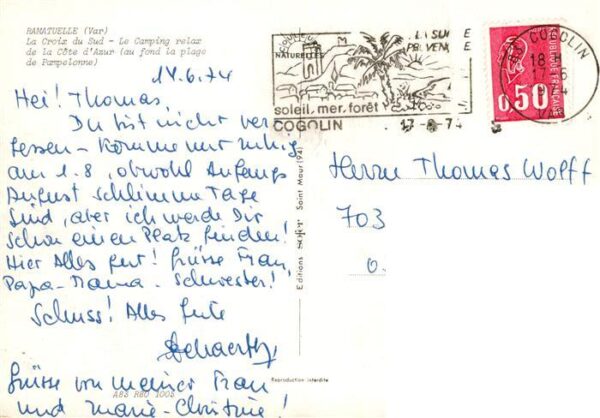 RAMATUELLE (Var)
La Croix du Sud - Le Camping relax
de la Côte d'Azur (au fond la plage
de Pampelonne)
14.6.74
Hei! Thomas,
Du bist nicht ver
gessen - Komme nur ruhig
am 1.8, obwohl Anfangs
August schlimme Tage
sind, aber ich werde Dir
schon einen Platz finden!
Hier Alles gut! Grüsse Frau,
Papa - Mama - Schwester!
Schuss! Alles Gute
Grüsse von meiner Frau
und Marie-Christine!
A83 R80 1003
Editions SOFER Saint Maur (94)
Reproduction interdite
NATURELLES
soleil, mer, forêt
COGOLIN
17-6-74
COGOLIN
18 H
17-6
VAR
0,50
REPUBLIQUE FRANÇAISE
Herrn Thomas Wolff
703
O.